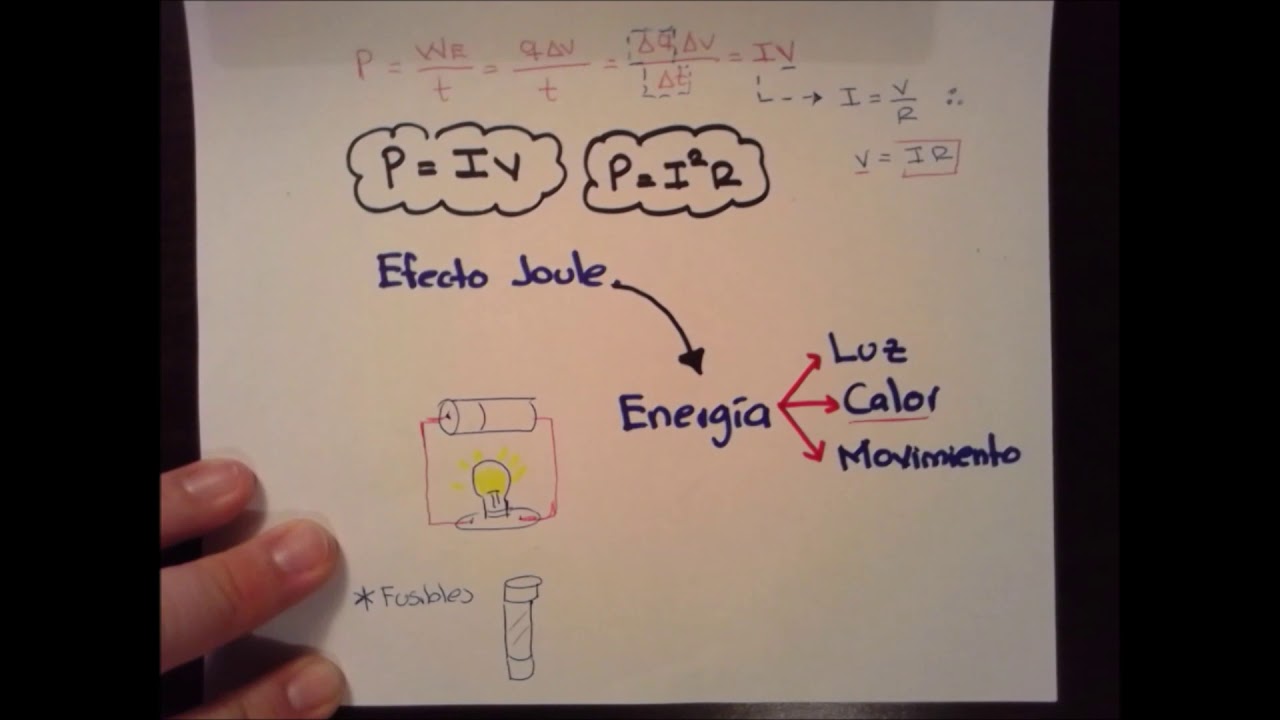 P = WE/t = qΔV/t = Δq ΔV/Δt = IV
I = V/R ∴
V = IR
P = IV
P = I²R
Efecto Joule
Luz
Energía
Calor
Movimiento
*Fusibles